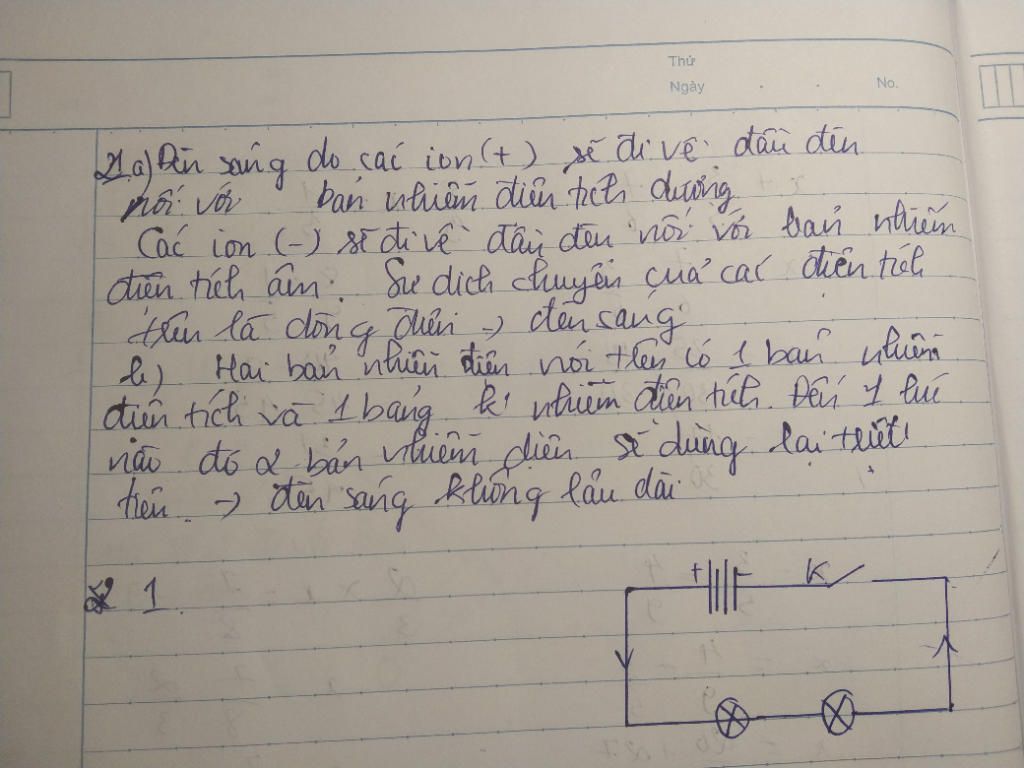 Thứ
Ngày
No.
21.a) Đèn sáng do các ion (+) sẽ đi về đầu đèn
nối với bản nhiễm điện tích dương
Các ion (-) sẽ đi về đầu đèn nối với bản nhiễm
điện tích âm. Sự dịch chuyển của các điện tích
trên là dòng điện → đèn sáng
b) Hai bản nhiễm điện nói trên có 1 bản nhiễm
điện tích và 1 bảng k' nhiễm điện tích. Đến 1 lúc
nào đó 2 bản nhiễm điện sẽ dừng lại triệt
tiêu. → đèn sáng không lâu dài
2 1.
+ - K